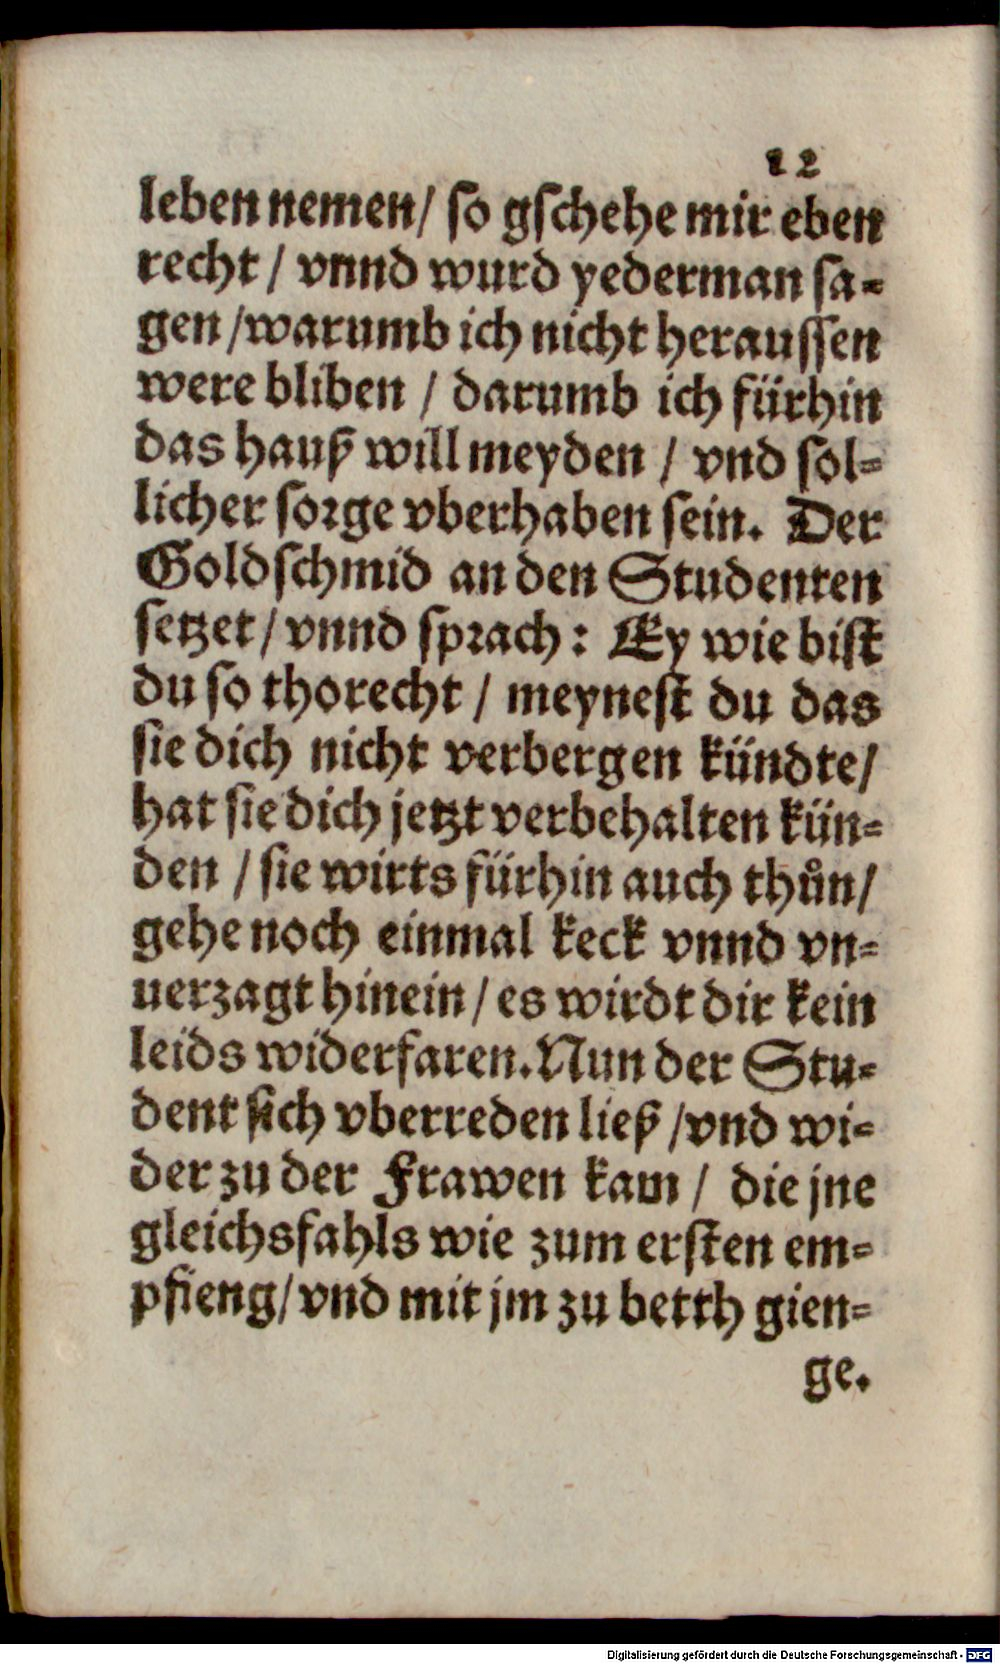 12
leben nemen/ so gschehe mir eben
recht / vnnd wurd yederman sa-
gen /warumb ich nicht heraussen
were bliben / darumb ich fürhin
das hauß will meyden / vnd sol-
licher sorge vberhaben sein. Der
Goldschmid an den Studenten
setzet/ vnnd sprach: Ey wie bist
du so thorecht / meynest du das
sie dich nicht verbergen kündte/
hat sie dich jetzt verbehalten kün-
den / sie wirts fürhin auch thůn/
gehe noch einmal keck vnnd vn-
uerzagt hinein/ es wirdt dir kein
leids widerfaren. Nun der Stu-
dent sich vberreden ließ /vnd wi-
der zu der Frawen kam / die jne
gleichsfahls wie zum ersten em-
pfieng/ vnd mit jm zu betth gien-
ge.
Digitalisierung gefördert durch die Deutsche Forschungsgemeinschaft - DFG